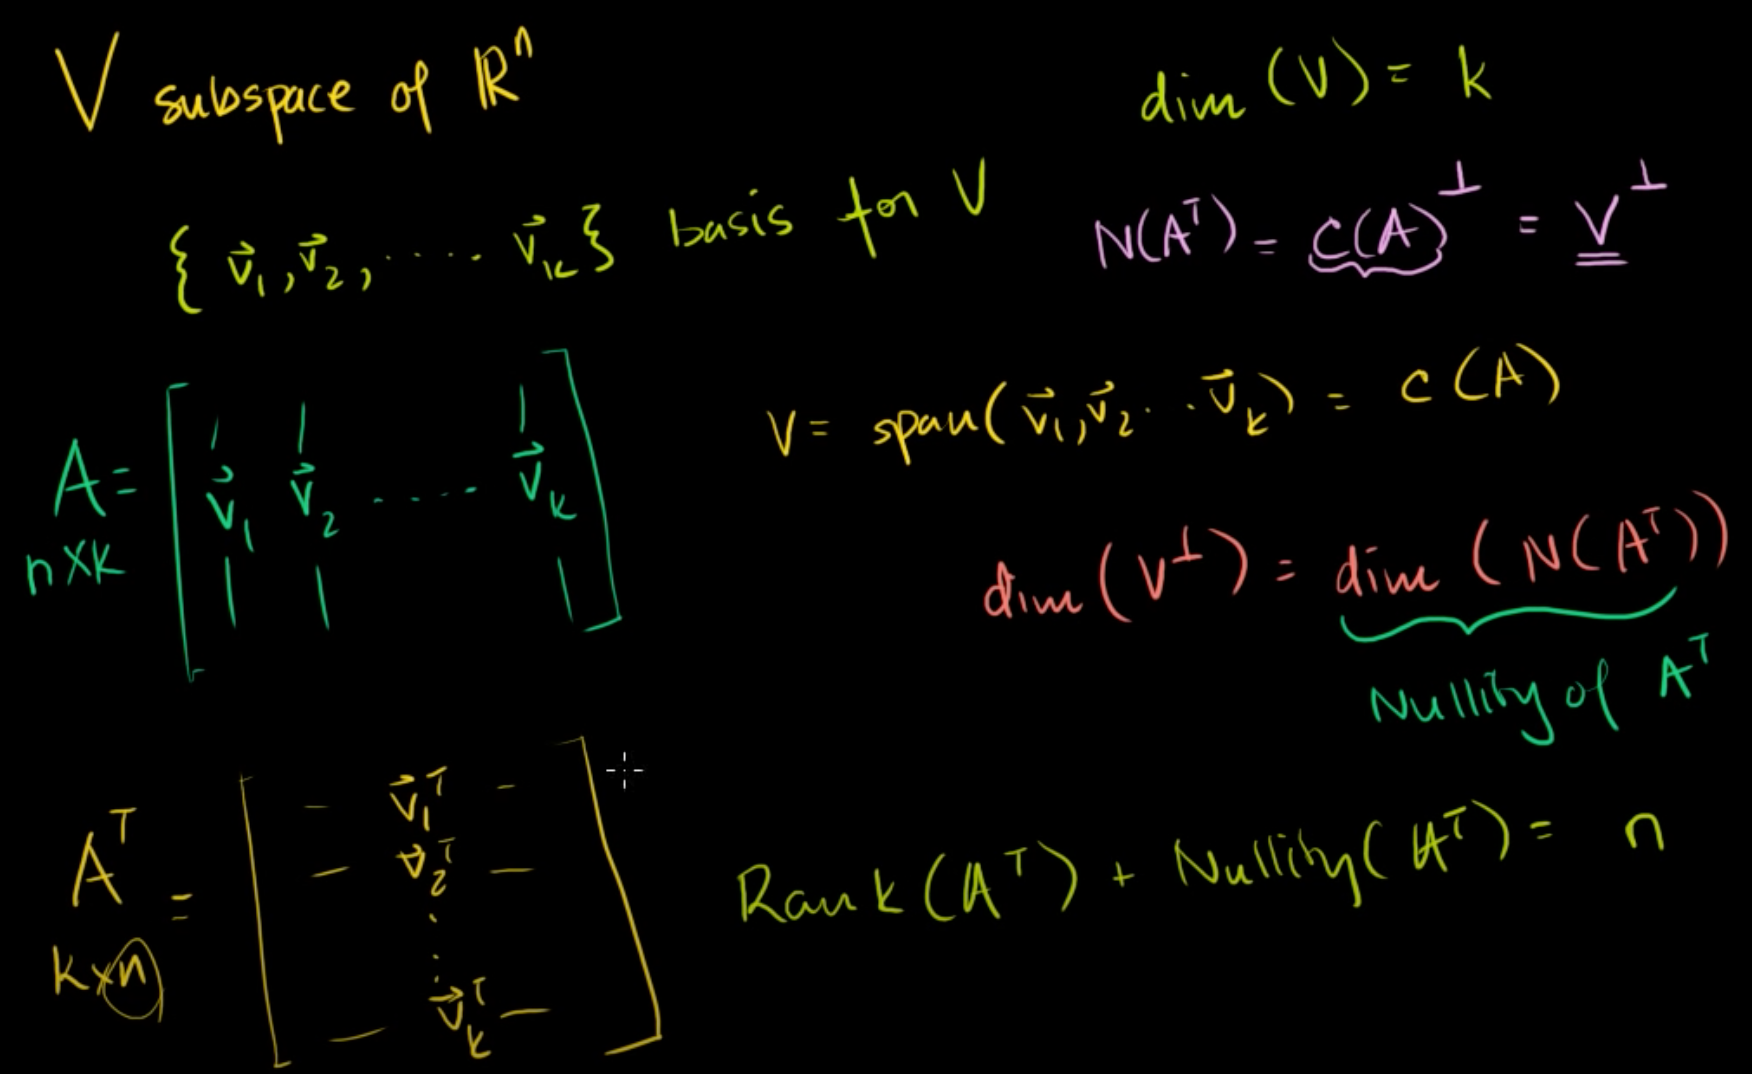 V subspace of ℝⁿ
dim (V) = k
{ v⃗₁, v⃗₂, ..... v⃗ₖ} basis for V
N(Aᵀ) = C(A)^⊥ = V^⊥
A = [ v⃗₁ v⃗₂ ..... v⃗ₖ ]
n×k
V = span(v⃗₁, v⃗₂ . . . v⃗ₖ) = C(A)
dim (V^⊥) = dim (N(Aᵀ))
Nullity of Aᵀ
Aᵀ = [ – v⃗₁ᵀ –
– v⃗₂ᵀ –
⋮
– v⃗ₖᵀ – ]
k×n
Rank(Aᵀ) + Nullity(Aᵀ) = n